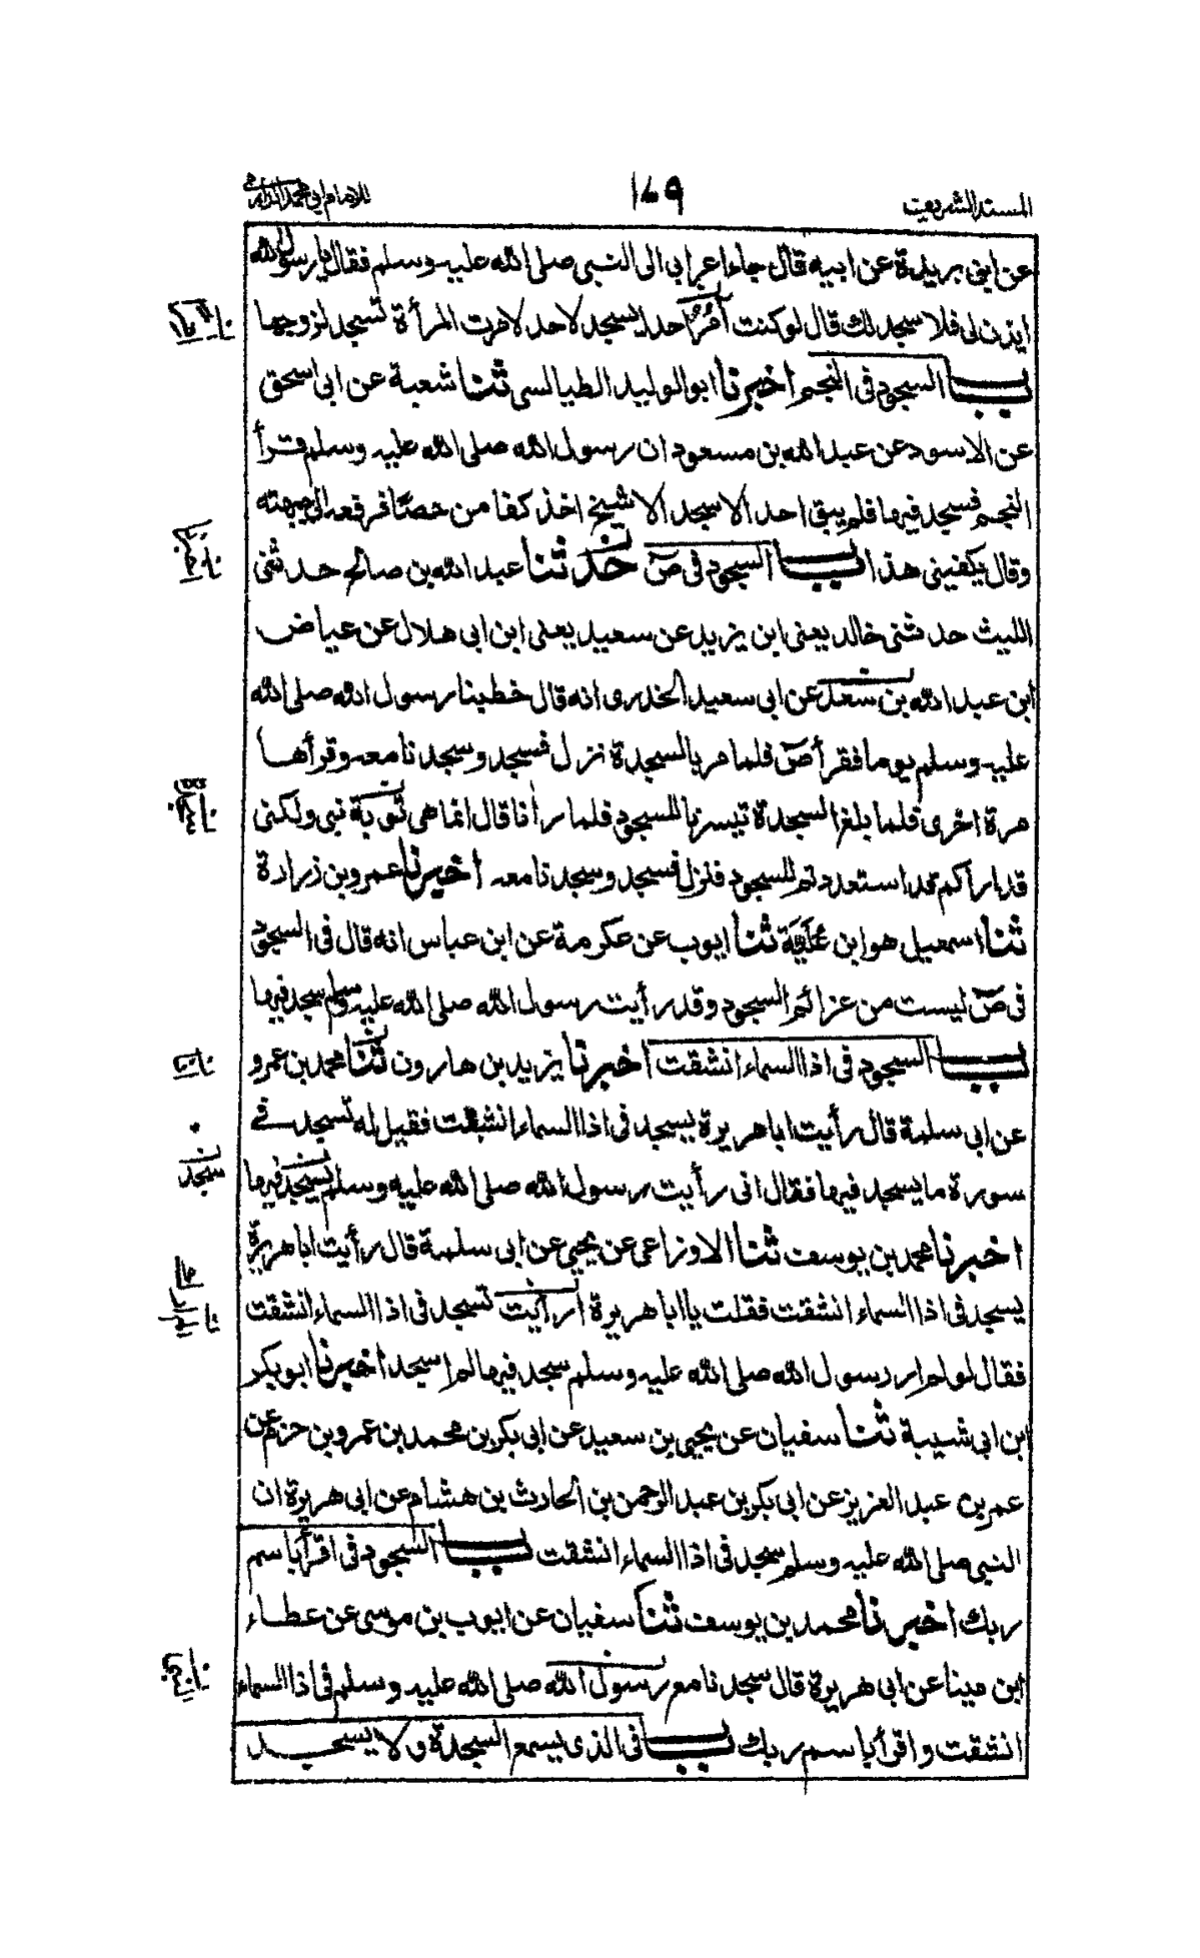 المسند الشريف
١٧٩
للامام ابي محمد الدارمي
عن ابن بريدة عن ابيه قال جاء اعرابي الى النبي صلى الله عليه وسلم فقال يا رسول الله
ايذن لى فلاسجد لك قال لو كنت آمرًا احدا يسجد لاحد لامرت المرأة تسجد لزوجها
باب السجود فى النجم اخبرنا ابو الوليد الطيالسى ثنا شعبة عن ابى اسحق
عن الاسود عن عبد الله بن مسعود ان رسول الله صلى الله عليه وسلم قرأ
النجم فسجد فيها فلم يبق احد الا سجد الا شيخ اخذ كفا من حصا فرفعه الى جبهته
وقال يكفينى هذا باب السجود فى صٓ حدثنا عبد الله بن صالح حدثنى
الليث حدثنى خالد يعنى ابن يزيد عن سعيد يعنى ابن ابى هلال عن عياض
ابن عبد الله بن سعد عن ابى سعيد الخدرى انه قال خطبنا رسول الله صلى الله
عليه وسلم يوما فقرأ صٓ فلما مر بالسجدة نزل فسجد وسجدنا معه وقرأها
مرة اخرى فلما بلغ السجدة تيسرنا للسجود فلما رأنا قال انما هى توبة نبى ولكنى
قد اراكم قد استعددتم للسجود فنزل فسجد وسجدنا معه اخبرنا عمرو بن زرارة
ثنا اسمعيل هو ابن عُلَيَّة ثنا ايوب عن عكرمة عن ابن عباس انه قال فى السجود
فى صٓ ليست من عزائم السجود وقد رأيت رسول الله صلى الله عليه وسلم سجد فيها
باب السجود فى اذا السماء انشقت اخبرنا يزيد بن هارون ثنا محمد بن عمرو
عن ابى سلمة قال رأيت ابا هريرة يسجد فى اذا السماء انشقت فقيل له تسجد فے
سورة ما يسجد فيها فقال انى رأيت رسول الله صلى الله عليه وسلم يسجد فيها
اخبرنا محمد بن يوسف ثنا الاوزاعى عن يحيى عن ابى سلمة قال رأيت ابا هريرة
يسجد فى اذا السماء انشقت فقلت يا ابا هريرة أرأيت تسجد فى اذا السماء انشقت
فقال لو لم ار رسول الله صلى الله عليه وسلم سجد فيها لم اسجد اخبرنا ابو بكر
بن ابى شيبة ثنا سفيان عن يحيى بن سعيد عن ابى بكر بن محمد بن عمرو بن حزم عن
عمر بن عبد العزيز عن ابى بكر بن عبد الرحمن بن الحارث بن هشام عن ابى هريرة ان
النبى صلى الله عليه وسلم سجد فى اذا السماء انشقت باب السجود فى اقرأ باسم
ربك اخبرنا محمد بن يوسف ثنا سفيان عن ايوب بن موسى عن عطاء
ابن مينا عن ابى هريرة قال سجدنا مع رسول الله صلى الله عليه وسلم فى اذا السماء
انشقت واقرأ باسم ربك باب فى الذى يسمع السجدة ولا يسجد
سجد